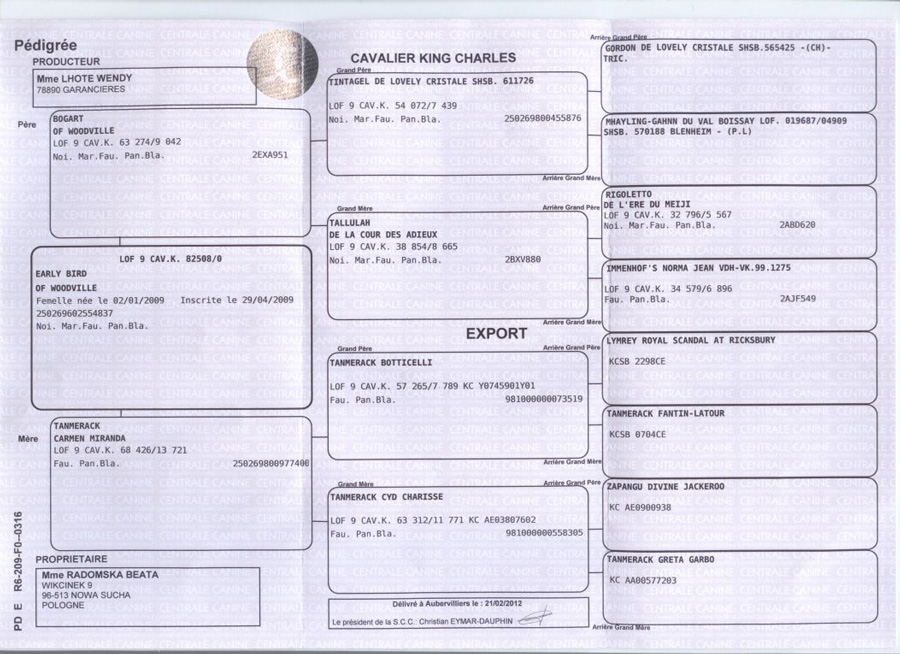 Pédigrée
PRODUCTEUR
Mme LHOTE WENDY
78890 GARANCIERES
CAVALIER KING CHARLES
Père
BOGART
OF WOODVILLE
LOF 9 CAV.K. 63 274/9 042
Noi. Mar.Fau. Pan.Bla. 2EXA951
LOF 9 CAV.K. 82508/0
EARLY BIRD
OF WOODVILLE
Femelle née le 02/01/2009 Inscrite le 29/04/2009
250269602554837
Noi. Mar.Fau. Pan.Bla.
Mère
TANMERACK
CARMEN MIRANDA
LOF 9 CAV.K. 68 426/13 721
Fau. Pan.Bla. 250269800977400
PROPRIETAIRE
Mme RADOMSKA BEATA
WIKCINEK 9
96-513 NOWA SUCHA
POLOGNE
PD E R6-209-F0--0316
Grand Père
TINTAGEL DE LOVELY CRISTALE SHSB. 611726
LOF 9 CAV.K. 54 072/7 439
Noi. Mar.Fau. Pan.Bla. 250269800455876
Grand Mère
TALLULAH
DE LA COUR DES ADIEUX
LOF 9 CAV.K. 38 854/8 665
Noi. Mar.Fau. Pan.Bla. 2BXV880
EXPORT
Grand Père
TANMERACK BOTTICELLI
LOF 9 CAV.K. 57 265/7 789 KC Y0745901Y01
Fau. Pan.Bla. 981000000073519
Grand Mère
TANMERACK CYD CHARISSE
LOF 9 CAV.K. 63 312/11 771 KC AE03807602
Fau. Pan.Bla. 981000000558305
Délivré à Aubervilliers le : 21/02/2012
Le président de la S.C.C. Christian EYMAR-DAUPHIN
Arrière Grand Père
GORDON DE LOVELY CRISTALE SHSB.565425 -(CH)-
TRIC.
MHAYLING-GAHNN DU VAL BOISSAY LOF. 019687/04909
SHSB. 570188 BLENHEIM - (P.L)
Arrière Grand Mère
Arrière Grand Père
RIGOLETTO
DE L'ERE DU MEIJI
LOF 9 CAV.K. 32 796/5 567
Noi. Mar.Fau. Pan.Bla. 2ABD620
IMMENHOF'S NORMA JEAN VDH-VK.99.1275
LOF 9 CAV.K. 34 579/6 896
Fau. Pan.Bla. 2AJF549
Arrière Grand Mère
Arrière Grand Père
LYMREY ROYAL SCANDAL AT RICKSBURY
KCSB 2298CE
TANMERACK FANTIN-LATOUR
KCSB 0704CE
Arrière Grand Mère
Arrière Grand Père
ZAPANGU DIVINE JACKEROO
KC AE0900938
TANMERACK GRETA GARBO
KC AA00577203
Arrière Grand Mère